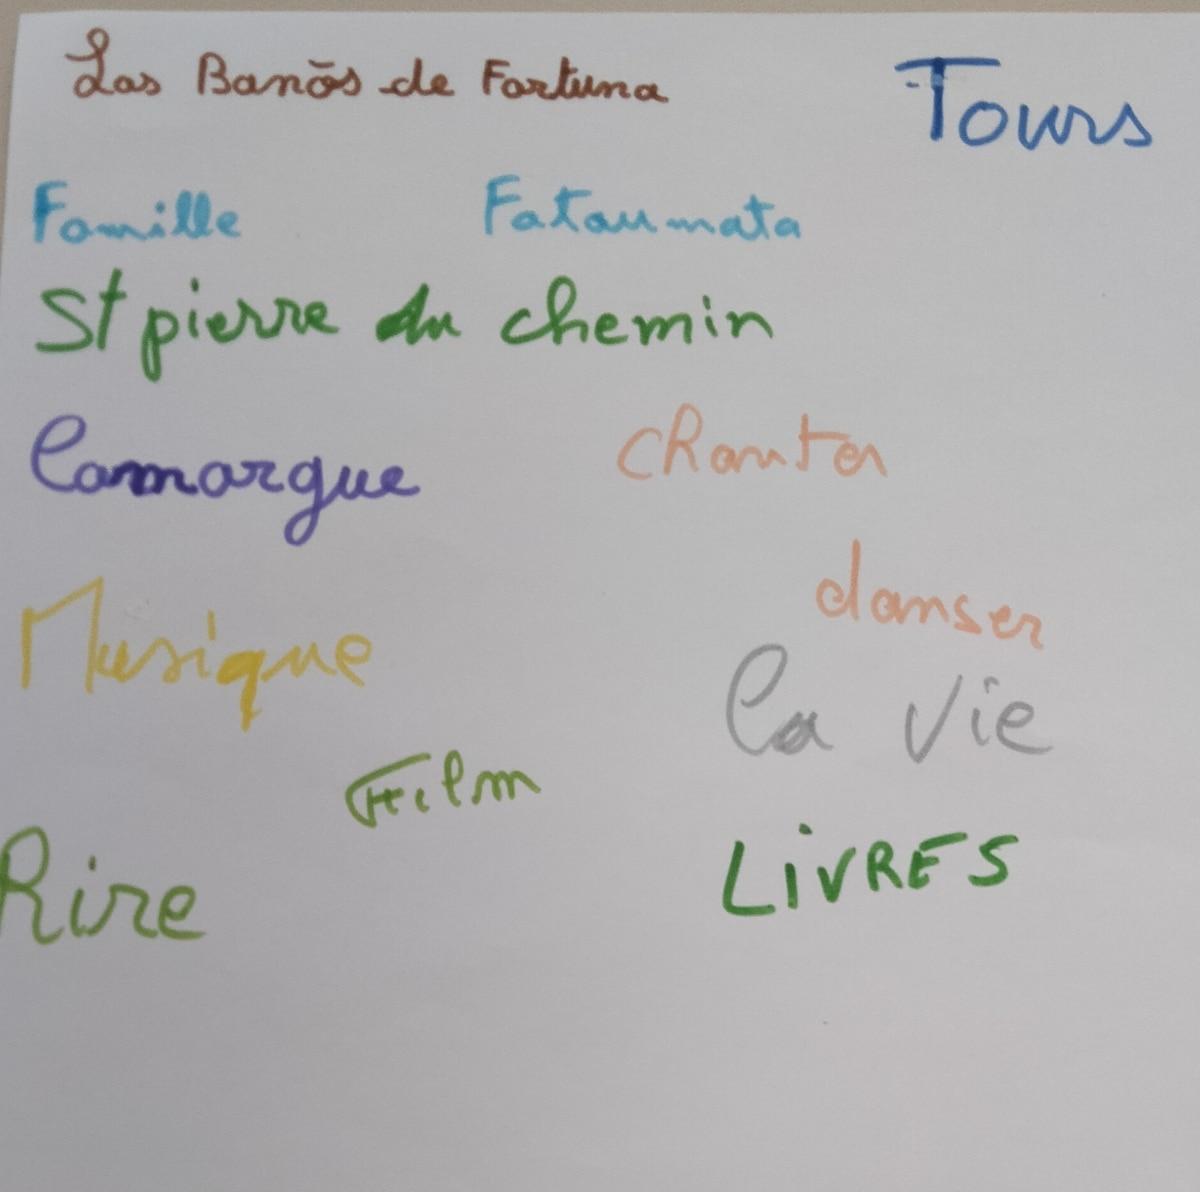 Las Banõs de Fortuna
Tours
Famille
Fatoumata
St pierre du chemin
Camargue
chanter
danser
Musique
la vie
Film
LiVRES
Rire